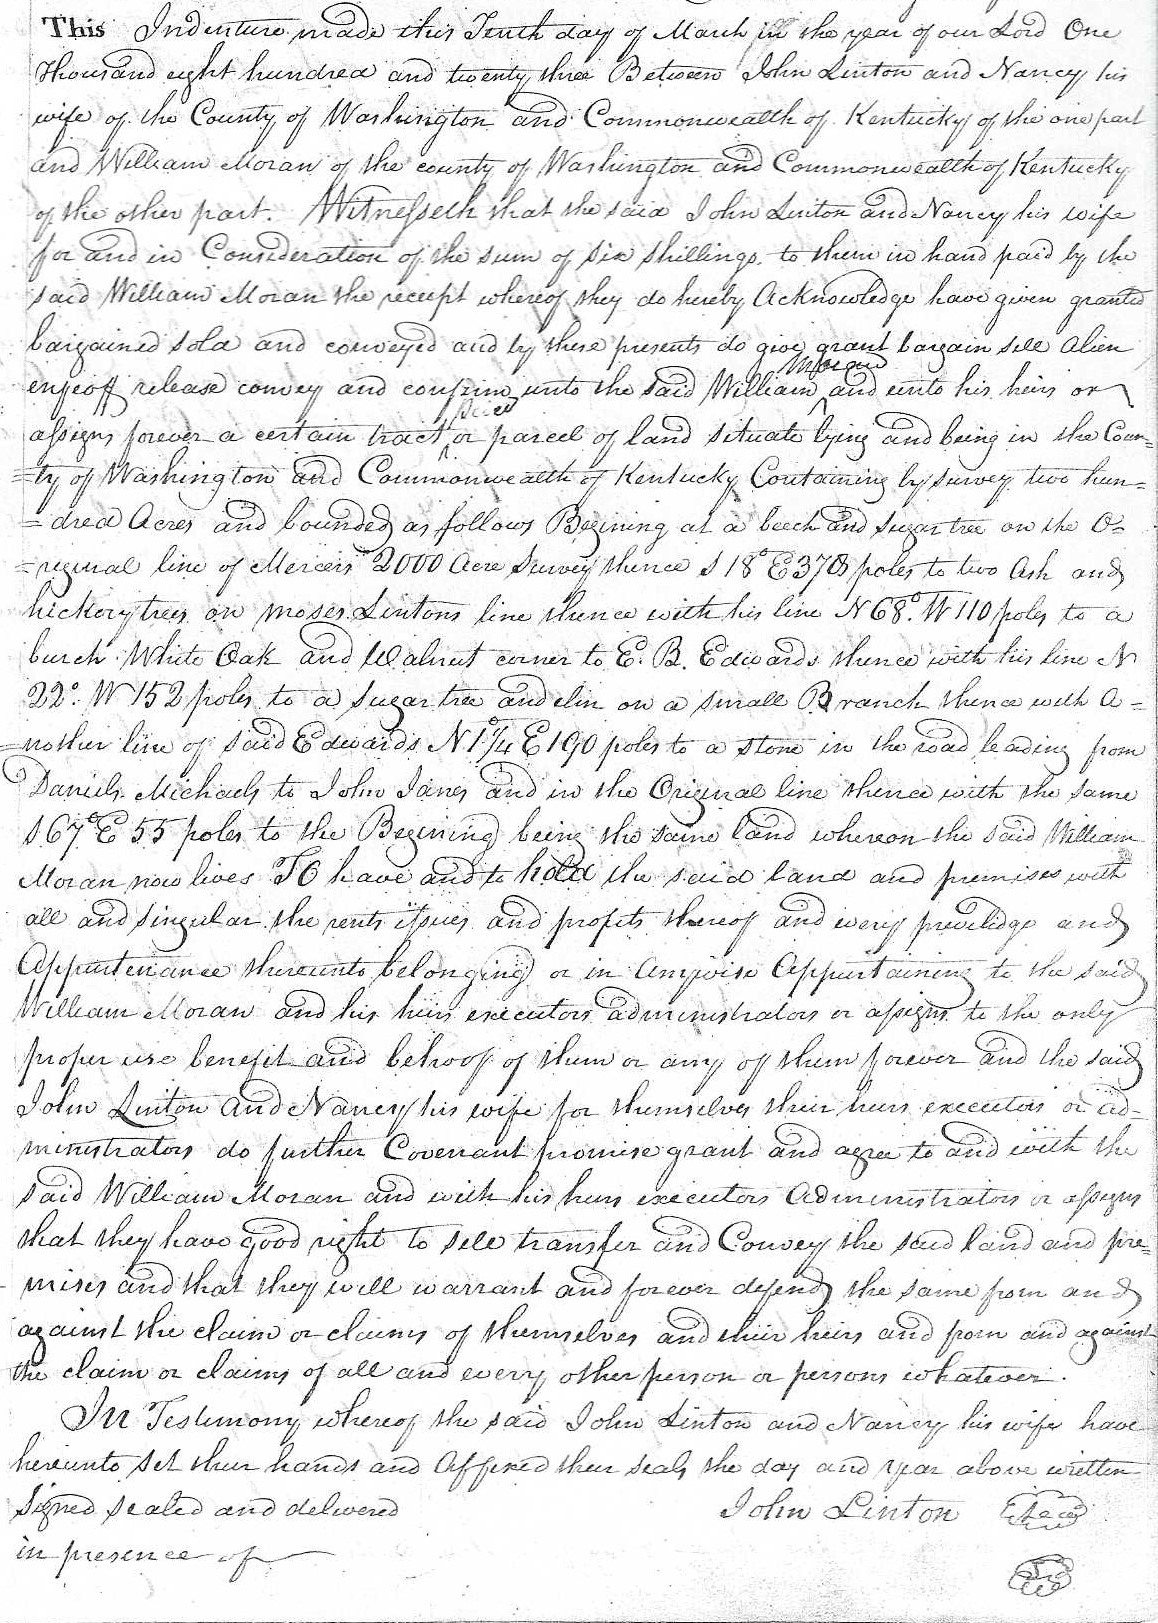 This Indenture made this Tenth day of March in the year of our Lord One
Thousand eight hundred and twenty three Between John Linton and Nancy his
wife of the County of Washington and Commonwealth of Kentucky of the one part
and William Moran of the county of Washington and Commonwealth of Kentucky
of the other part. Witnesseth that the said John Linton and Nancy his wife
for and in Consideration of the sum of six shillings to them in hand paid by the
said William Moran the receipt whereof they do hereby Acknowledge have given granted
bargained sold and conveyed and by these presents do give grant bargain sell Alien
Moran
enfeoff release convey and confirm unto the said William and unto his heirs or
piece
assigns forever a certain tract or parcel of land situate lying and being in the Coun=
=ty of Washington and Commonwealth of Kentucky Containing by survey two hun=
=dred Acres and bounded as follows Begining at a beech and sugartree on the O=
=riginal line of Mercers 2000 Acre Survey thence S 18° E 370 poles to two Ash and
hickory trees on Moses Lintons line thence with his line N 68° W 110 poles to a
burch White Oak and Walnut corner to E. B. Edwards thence with his line N
22° W 152 poles to a sugartree and elm on a small Branch thence with A=
=nother line of said Edwards N 1°/4 E 190 poles to a stone in the road leading from
Daniels Michaels to John Janes and in the Original line thence with the same
S 67° E 55 poles to the Begining being the same land whereon the said William
Moran now lives TO have and to hold the said land and premises with
all and singular the rents issues and profits thereof and every previlidge and
Appurtenance thereunto belonging or in anywise Appurtaining to the said
William Moran and his heirs executors administrators or assigns to the only
proper use benefit and behoof of them or any of them forever and the said
John Linton and Nancy his wife for themselves their heirs executors or ad=
ministrators do further Covenant promise grant and agree to and with the
said William Moran and with his heirs executors Administrators or assigns
that they have good right to sell transfer and Convey the said land and pre=
mises and that they will warrant and forever defend the same from and
against the claim or claims of themselves and their heirs and from and against
the claim or claims of all and every other person or persons whatever.
In Testimony whereof the said John Linton and Nancy his wife have
hereunto set their hands and Affixed their seals the day and year above written
Signed sealed and delivered John Linton Seal
in presence of